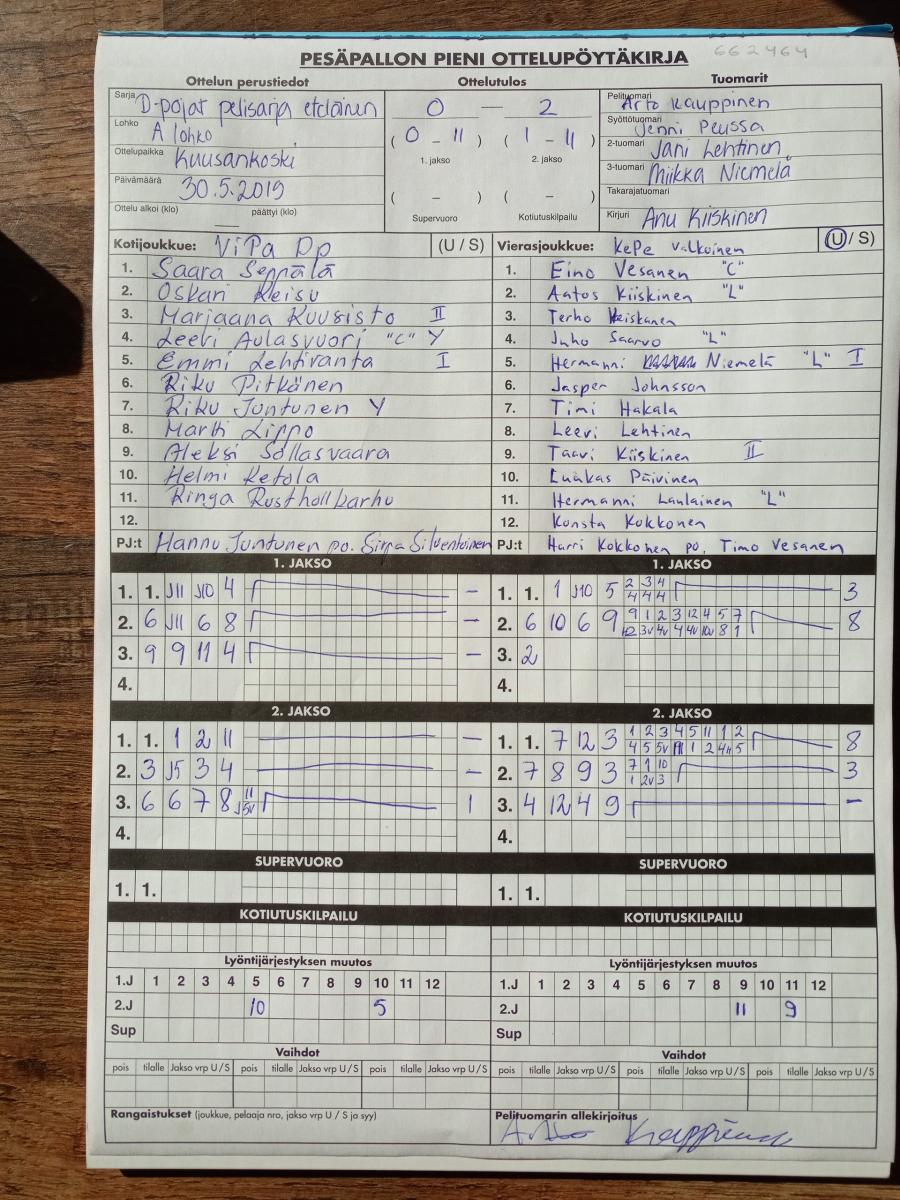 662464
PESÄPALLON PIENI OTTELUPÖYTÄKIRJA
Ottelun perustiedot Ottelutulos Tuomarit
Sarja D-pojat pelisarja eteläinen
Lohko A lohko
Ottelupaikka Kuusankoski
Päivämäärä 30.5.2019
Ottelu alkoi (klo) päättyi (klo)
0 — 2
( 0 - 11 ) ( 1 - 11 )
1. jakso 2. jakso
( - ) ( - )
Supervuoro Kotiutuskilpailu
Pelituomari Arto Kauppinen
Syöttötuomari Jenni Peussa
2-tuomari Jani Lehtinen
3-tuomari Miikka Niemelä
Takarajatuomari
Kirjuri Anu Kiiskinen
Kotijoukkue: ViPa Dp (U / S)
1. Saara Seppälä
2. Oskari Reisu
3. Marjaana Kuusisto II
4. Leevi Aulasvuori "C" Y
5. Emmi Lehtiranta I
6. Riku Pitkänen
7. Riku Juntunen Y
8. Martti Lippo
9. Aleksi Sollasvaara
10. Helmi Ketola
11. Ringa Rusthollkarhu
12.
PJ:t Hannu Juntunen po. Sirpa Silventoinen
Vierasjoukkue: KePe Valkoinen (U / S)
1. Eino Vesanen "C"
2. Aatos Kiiskinen "L"
3. Terho Heiskanen
4. Juho Saarvo "L"
5. Hermanni Niemelä "L" I
6. Jasper Johnsson
7. Timi Hakala
8. Leevi Lehtinen
9. Taavi Kiiskinen II
10. Luukas Päivinen
11. Hermanni Laulainen "L"
12. Konsta Kokkonen
PJ:t Harri Kokkonen po. Timo Vesanen
1. JAKSO
1. 1. J11 J10 4 –
2. 6 J11 6 8 –
3. 9 9 11 4 –
4.
1. JAKSO
1. 1. 1 J10 5 2 3 4 3
4 4 4
2. 6 10 6 9 9 1 2 3 12 4 5 7 8
12 3v 4v 4 4v 10v 8 1
3. 2
4.
2. JAKSO
1. 1. 1 2 11 –
2. 3 J5 3 4 –
3. 6 6 7 8 11 1
J5v
4.
2. JAKSO
1. 1. 7 12 3 1 2 3 4 5 11 1 2 8
4 5 5v 1 2 4n 5
2. 7 8 9 3 7 1 10 3
1 2v 3
3. 4 12 4 9 –
4.
SUPERVUORO
1. 1.
SUPERVUORO
1. 1.
KOTIUTUSKILPAILU
KOTIUTUSKILPAILU
Lyöntijärjestyksen muutos
1.J 1 2 3 4 5 6 7 8 9 10 11 12
2.J 10 5
Sup
Lyöntijärjestyksen muutos
1.J 1 2 3 4 5 6 7 8 9 10 11 12
2.J 11 9
Sup
Vaihdot
pois tilalle Jakso vrp U / S pois tilalle Jakso vrp U / S pois tilalle Jakso vrp U / S
Vaihdot
pois tilalle Jakso vrp U / S pois tilalle Jakso vrp U / S pois tilalle Jakso vrp U / S
Rangaistukset (joukkue, pelaaja nro, jakso vrp U / S ja syy)
Pelituomarin allekirjoitus
Arto Kauppinen